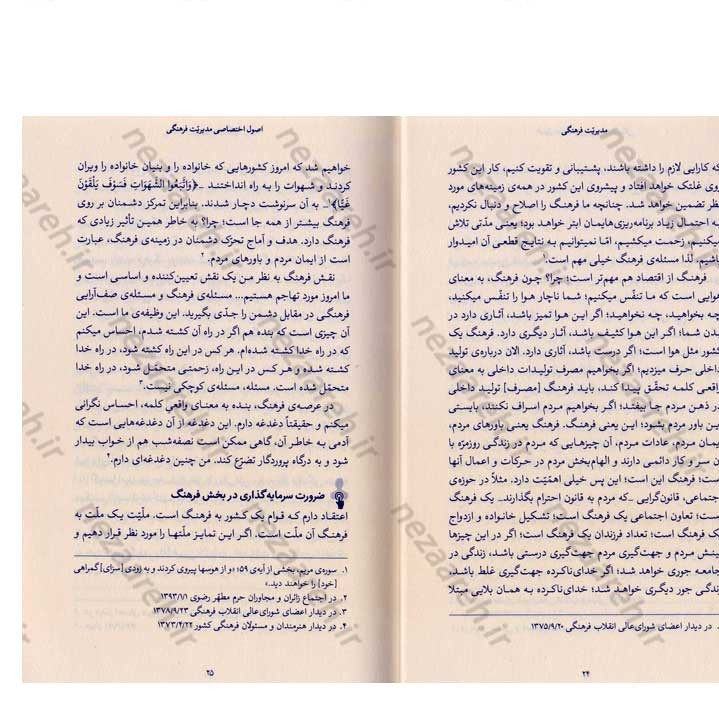 مدیریّت فرهنگی
که کارایی لازم را داشته باشند، پشتیبانی و تقویت کنیم، کار این کشور
روی غلتک خواهد افتاد و پیشروی این کشور در همه‌ی زمینه‌های مورد
نظر تضمین خواهد شد. چنانچه ما فرهنگ را اصلاح و دنبال نکردیم،
به احتمال زیاد برنامه‌ریزی‌هایمان ابتر خواهد بود؛ یعنی مدّتی تلاش
میکنیم، زحمت میکشیم، امّا نمیتوانیم به نتایج قطعی آن امیدوار
باشیم. لذا مسئله‌ی فرهنگ خیلی مهم است.۱
فرهنگ از اقتصاد هم مهم‌تر است؛ چرا؟ چون فرهنگ، به معنای
هوایی است که ما تنفّس میکنیم؛ شما ناچار هوا را تنفّس میکنید،
چه بخواهید، چه نخواهید؛ اگر این هوا تمیز باشد، آثاری دارد در
بدن شما؛ اگر این هوا کثیف باشد، آثار دیگری دارد. فرهنگ یک
کشور مثل هوا است؛ اگر درست باشد، آثاری دارد. الان درباره‌ی تولید
داخلی حرف میزدیم؛ اگر بخواهیم مصرف تولیدات داخلی به معنای
واقعی کلمه تحقّق پیدا کند، باید فرهنگ [مصرف] تولید داخلی
در ذهن مردم جا بیفتد؛ اگر بخواهیم مردم اسراف نکنند، بایستی
این باور مردم بشود؛ این یعنی فرهنگ. فرهنگ یعنی باورهای مردم،
ایمان مردم، عادات مردم، آن چیزهایی که مردم در زندگی روزمرّه با
آن سر و کار دائمی دارند و الهام‌بخش مردم در حرکات و اعمال آنها
است؛ فرهنگ این است؛ این پس خیلی اهمّیّت دارد. مثلاً در حوزه‌ی
اجتماعی، قانون‌گرایی ـ‌که مردم به قانون احترام بگذارند‌ـ یک فرهنگ
است؛ تعاون اجتماعی یک فرهنگ است؛ تشکیل خانواده و ازدواج
یک فرهنگ است؛ تعداد فرزندان یک فرهنگ است؛ اگر در این چیزها
بینش مردم و جهت‌گیری مردم جهت‌گیری درستی باشد، زندگی در
جامعه جوری خواهد شد؛ اگر خدای‌ناکرده جهت‌گیری غلط باشد،
زندگی جور دیگری خواهد شد؛ خدای‌ناکرده به همان بلایی مبتلا
در دیدار اعضای شورای‌عالی انقلاب فرهنگی ۱۳۷۵/۹/۲۰
۲۴
اصول اختصاصی مدیریّت فرهنگی
خواهیم شد که امروز کشورهایی که خانواده را و بنیان خانواده را ویران
کردند و شهوات را به راه انداختند ـ﴿وَاتَّبَعُوا الشَّهَوَاتِ فَسَوْفَ يَلْقَوْنَ
غَيًّا﴾۱ـ به آن سرنوشت دچار شدند. بنابراین تمرکز دشمنان بر روی
فرهنگ بیشتر از همه جا است؛ چرا؟ به خاطر همین تأثیر زیادی که
فرهنگ دارد. هدف و آماج تحرّک دشمنان در زمینه‌ی فرهنگ، عبارت
است از ایمان مردم و باورهای مردم.۲
نقش فرهنگ به نظر من یک نقش تعیین‌کننده و اساسی است و
ما امروز مورد تهاجم هستیم... مسئله‌ی فرهنگ و مسئله‌ی صف‌آرایی
فرهنگی در مقابل دشمن را جدّی بگیرید. این وظیفه‌ی ما است. این
آن چیزی است که بنده هم اگر در راه آن کشته شدم، احساس میکنم
که در راه خدا کشته شده‌ام. هر کس در این راه کشته شود، در راه خدا
کشته شده و هر کس در این راه، زحمتی متحمّل شود، در راه خدا
متحمّل شده است. مسئله، مسئله‌ی کوچکی نیست.۳
در عرصه‌ی فرهنگ، بنده به معنای واقعی کلمه، احساس نگرانی
میکنم و حقیقتاً دغدغه دارم. این دغدغه از آن دغدغه‌هایی است که
آدمی به خاطر آن، گاهی ممکن است نصفه‌شب هم از خواب بیدار
شود و به درگاه پروردگار تضرّع کند. من چنین دغدغه‌ای دارم.۴
ضرورت سرمایه‌گذاری در بخش فرهنگ
اعتقاد دارم که قوام یک کشور به فرهنگ است. ملّیّت یک ملّت به
فرهنگ آن ملّت است. اگر این تمایز ملّتها را مورد نظر قرار دهیم و
۱. سوره‌ی مریم، بخشی از آیه‌ی ۵۹؛ «و از هوسها پیروی کردند و به زودی [سزای] گمراهی
[خود] را خواهند دید.»
۲. در اجتماع زائران و مجاوران حرم مطهّر رضوی ۱۳۹۳/۱/۱
۳. در دیدار اعضای شورای‌عالی انقلاب فرهنگی ۱۳۷۸/۹/۲۳
۴. در دیدار هنرمندان و مسئولان فرهنگی کشور ۱۳۷۳/۴/۲۲
۲۵
nezaareh.ir